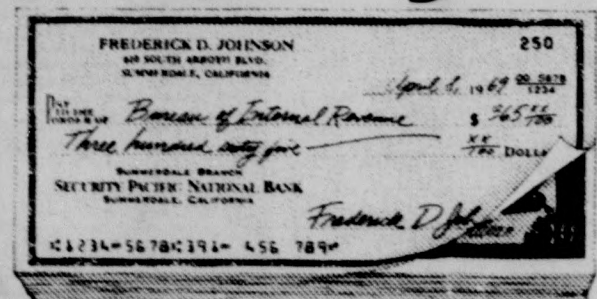 FREDERICK D. JOHNSON 250
SUMMERDALE, CALIFORNIA
April 8, 1969 00-5678
1234
PAY TO THE ORDER OF Bureau of Internal Revenue $ 365 xx/100
Three hundred sixty five xx/100 DOLLA
SUMMERDALE BRANCH
SECURITY PACIFIC NATIONAL BANK
SUMMERDALE, CALIFORNIA
Frederick D Joh
⑆1234⑉5678⑆391⑉ 456 789⑈